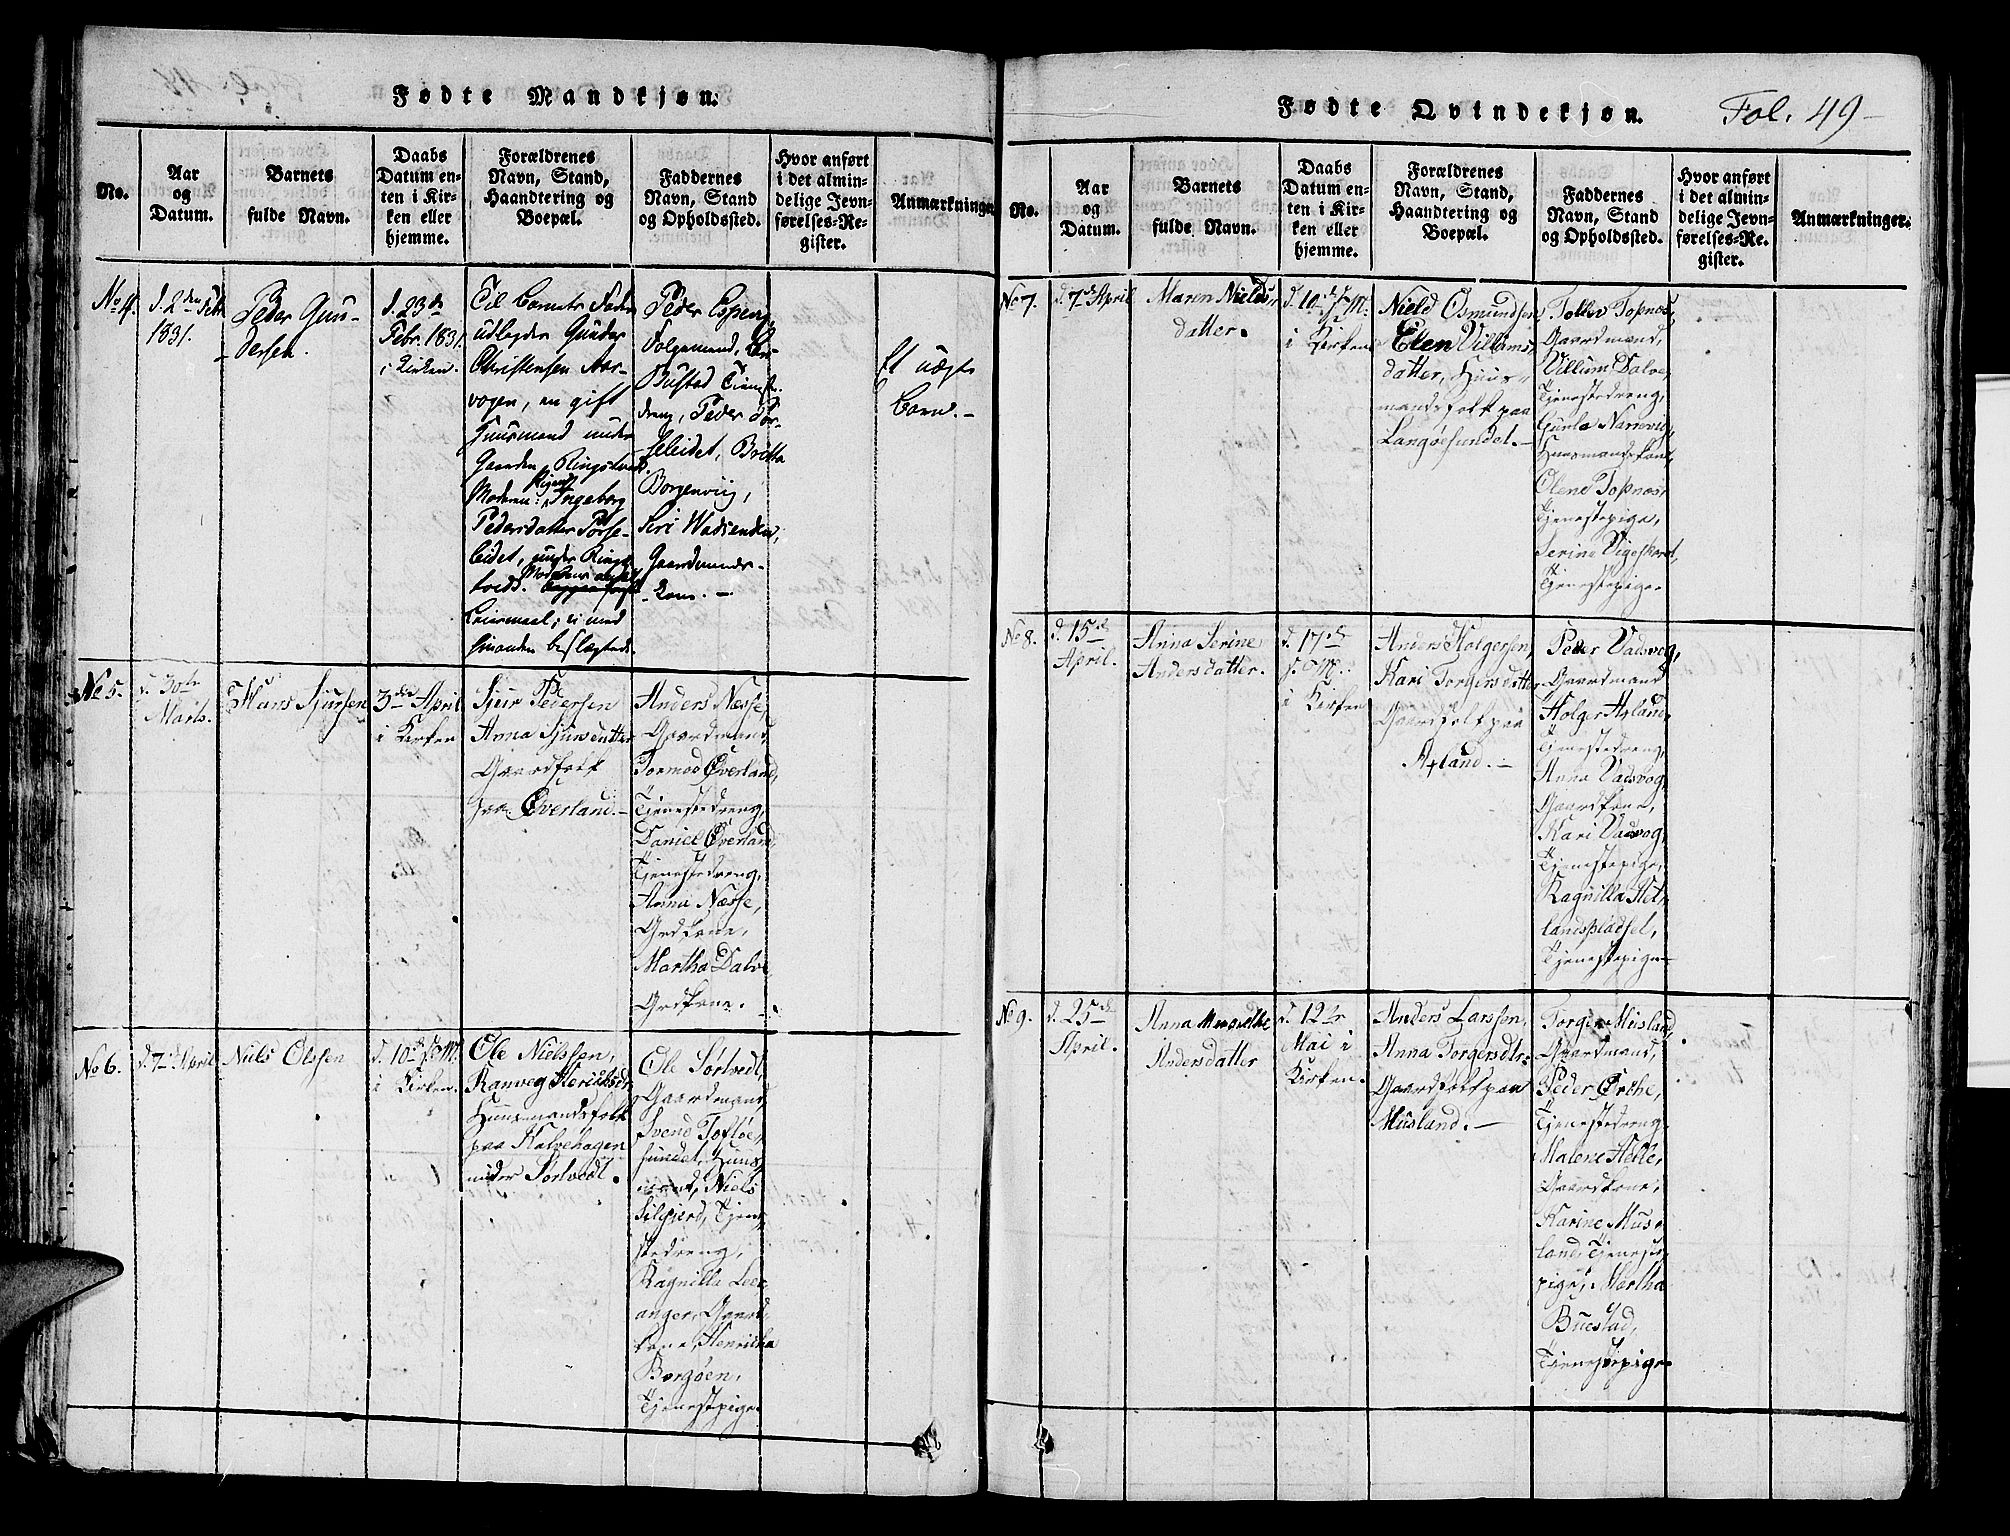 Fødte Mandkjøn.
No.
Aar
og
Datum.
Barnets
fulde Navn.
Daabs
Datum en-
ten i Kir-
ken eller
hjemme.
Forældrenes
Navn, Stand,
Haandtering og
Boepæl.
Faddernes
Navn, Stand
og Opholdssted.
Hvor anført
i det almin-
delige Jevn-
førelses-Re-
gister.
Anmærkninger
No 4.
d. 2den Febr
1831.
Peder Gun-
dersen.
d. 23de
Febr. 1831.
i Kirken.
Til Barnets Fader
udlegdes Gunder
Christensen Aar-
vogen, en gift
Huusmand under
Gaarden Ringstvedt.
Moderen: Pigen Ingeborg
Pedersdatter Torse-
leidet, under Rings-
tvedt. Moderens
Leiermaal; ei med
hinanden beslægtede.
Peder Esping
Folgemand,
Bustad Tjeneste-
dreng, Peder Tor-
seleidet, Britta
Borgenviig,
Siri Wadsenden,
Gaardmands-
kone. -
Et uægte
Barn. -
No 5.
d. 30te
Marts.
Hans Sjursen
3die April
i Kirken
Sjur Pedersen
Anna Sjursdatter
Gaardfolk
paa Øverland. -
Anders Næsse,
Gaardmand,
Tormod Øverland,
Tjenestedreng,
Daniel Øverland,
Tjenestedreng,
Anna Næsse,
Grdkone,
Martha Dalve
Grdkone. -
No 6.
d. 7de April
Niels Olssen
d. 10de s. M.
i Kirken.
Ole Nielssen,
Ranveg Henriksdtr
Huusmandsfolk
paa Kalvehagen
under Sørtvedt.
Ole Sørtvedt,
Gaardmand,
Svend Toftøe-
sundet, Huus-
mand, Niels
Silgjerd, Tjene-
stedreng,
Ragnilla Leer-
anger, Gaard-
kone, Henricha
Borgøen,
Tjenestepige.
Fødte Qvindekjøn.
Fol. 49-
No.
Aar
og
Datum.
Barnets
fulde Navn.
Daabs
Datum en-
ten i Kir-
ken eller
hjemme.
Forældrenes
Navn, Stand,
Haandtering og
Boepæl.
Faddernes
Navn, Stand
og Opholdssted.
Hvor anført
i det almin-
delige Jevn-
førelses-Re-
gister.
Anmærkninger.
No 7.
d. 7de April
Maren Niels-
datter.
d. 10de s. M.
i Kirken
Nield Osmundsen
Elen Villums-
datter, Huus-
mandsfolk paa
Langøesundet. -
Tollev Topnæs,
Gaardmand,
Villum Dalve,
Tjenestedreng,
Gunla Narrevig,
Huusmandskone,
Olene Topnæs,
Tjenestepige,
Serine Vigeskaret,
Tjenestepige.
No 8.
d. 15de
April.
Anna Serine
Andersdatter.
d. 17de
s. M.
i Kirken
Anders Holgersen,
Kari Torgersdatter
Gaardfolk paa
Axland. -
Peder Vadsvog,
Gaardmand
Holger Axland,
Tjenestedreng,
Anna Vadsvog,
Gaardkone,
Kari Vadsvog,
Tjenestepige,
Ragnilla Het-
landspladsel,
Tjenestepige
No 9.
d. 25de
April.
Anna
Andersdatter
d. 12te
Mai i
Kirken.
Anders Larssen,
Anna Torgersdtr
Gaardfolk paa
Musland. -
Torger Musland,
Gaardmand,
Peder Ørthe,
Tjenestedreng
Malene Helle,
Gaardkone,
Karine Mus-
land, Tjeneste-
pige, Martha
Buestad,
Tjenestepige